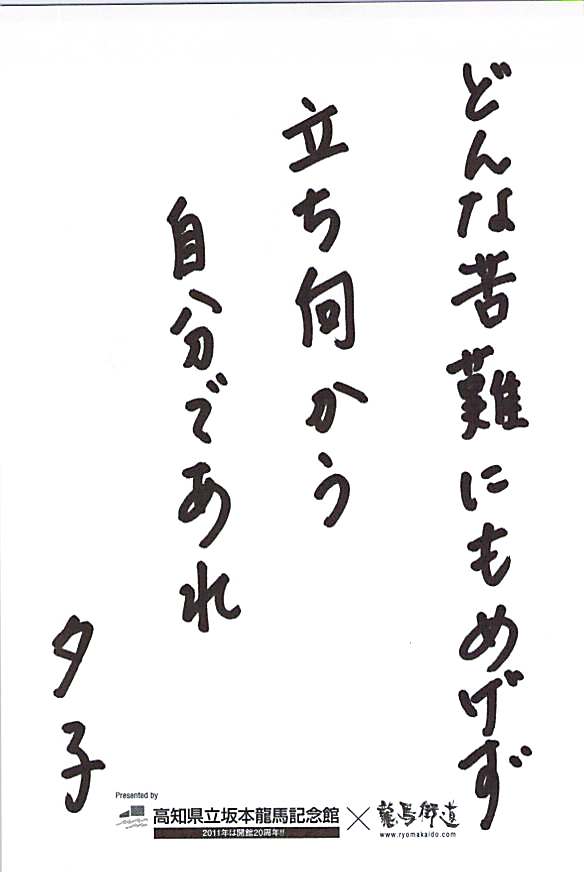 どんな苦難にもめげず
立ち向かう
自分であれ
夕子
Presented by
高知県立坂本龍馬記念館×龍馬街道
2011年は開館20周年!!
www.ryomakaido.com